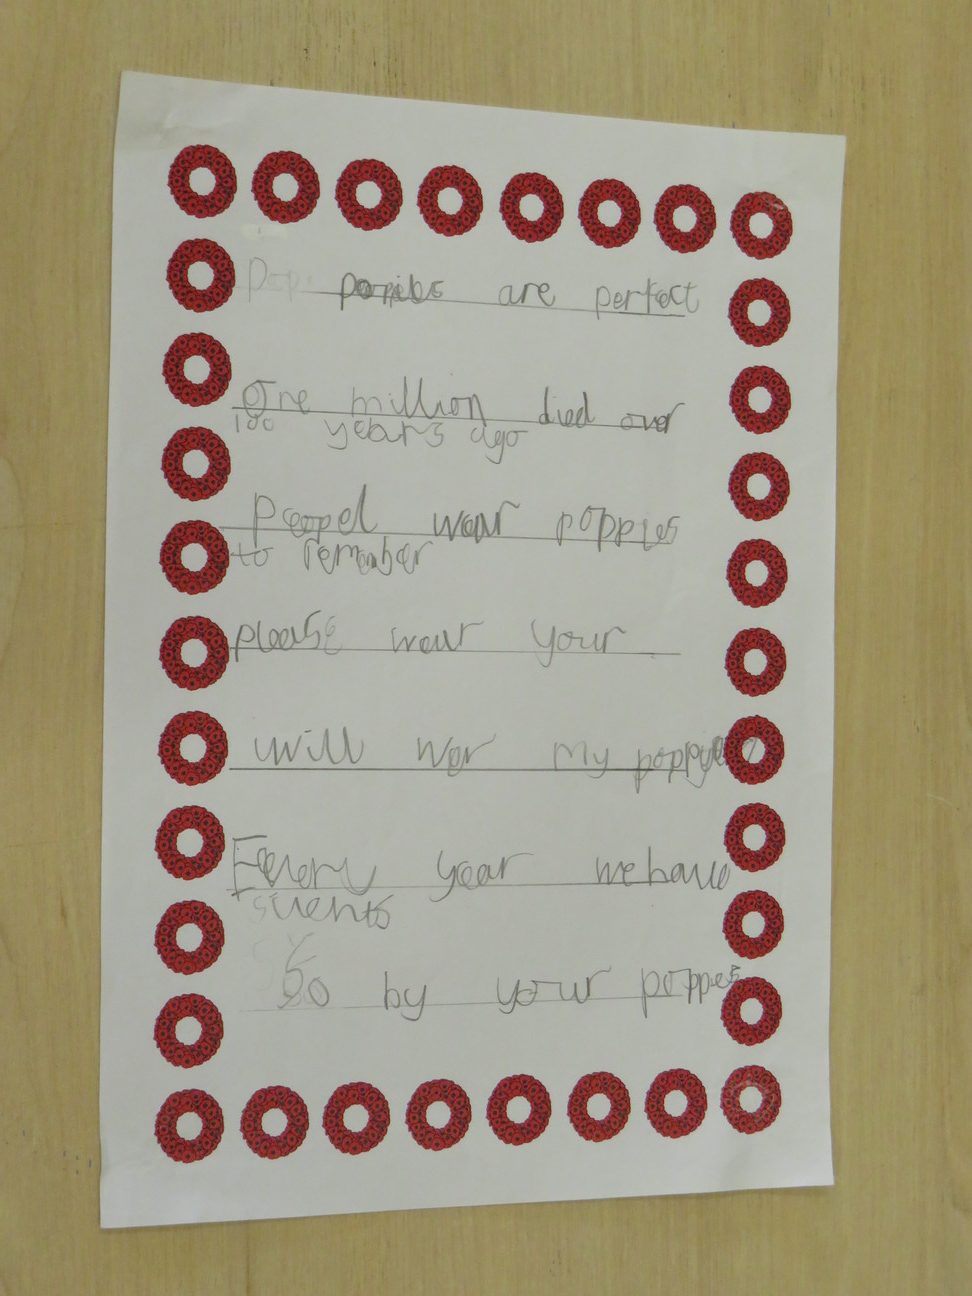 are perfect
One million died over
100 years ago
Peopel wear poppies
to remember
please wear your
will wer my
Every year we have
silents
So by your poppes